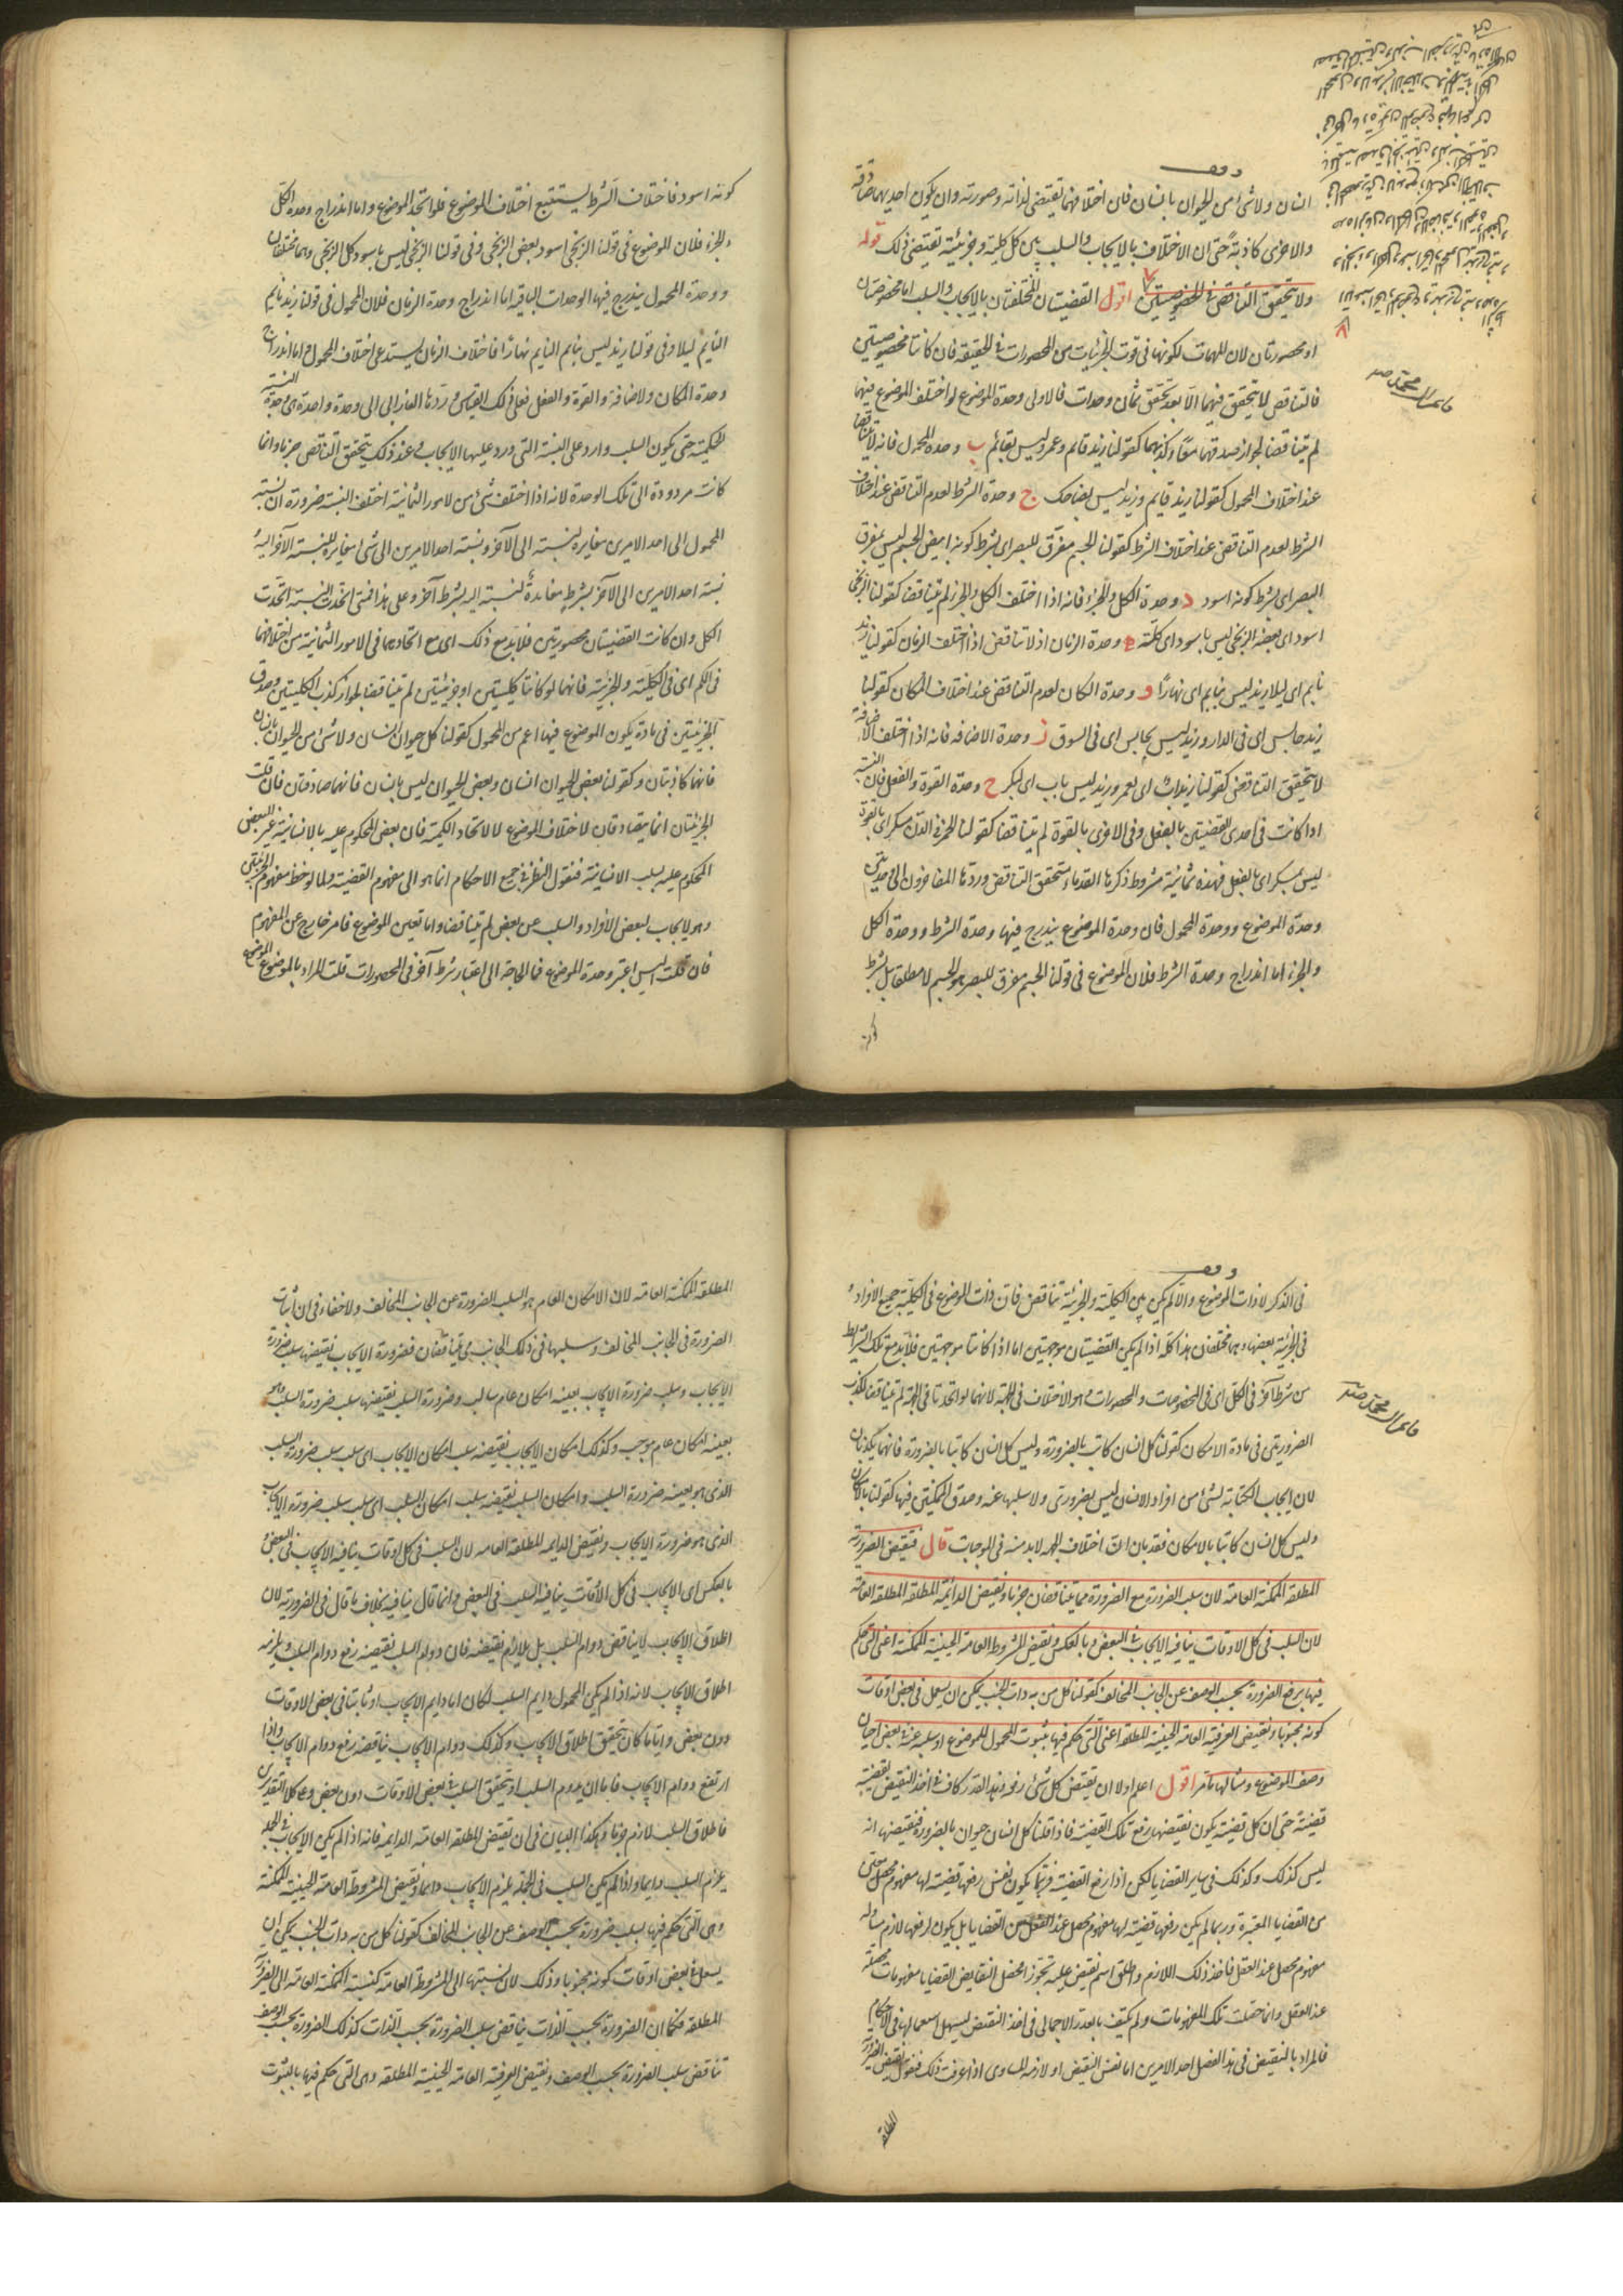 انسان ولا شئ من الحيوان بانسان فان اختلافهما يقتضى لذاته وصورته وان يكون احديهما صادقة
والاخرى كاذبة حتى ان الاختلاف بالايجاب والسلب بين كل كلية وجزئية تقتضى ذلك قوله
ولا يتحقق التناقض فى المخصوصتين اقول القضيتان المختلفتان بالايجاب والسلب اما مخصوصتان
او محصورتان لان المهملات لكونها فى قوت الجزئيات من المحصورات فى الحقيقة فان كانتا مخصوصتين
فالتناقض لا يتحقق فيهما الا بعد تحقق ثمان وحدات فالاولى وحدة الموضوع لو اختلف الموضوع فيهما
لم يتناقضا لجواز صدقهما معًا وكذبهما كقولنا زيد قائم وعمرو ليس بقائم ب وحدة المحمول فانه لا تناقض
عند اختلاف المحمول كقولنا زيد قايم وزيد ليس بضاحك ج وحدة الشرط لعدم التناقض عند اختلاف
الشرط لعدم التناقض عند اختلاف الشرط كقولنا الجسم مفرق للبصر اى بشرط كونه ابيض الجسم ليس بمفرق
البصر اى بشرط كونه اسود د وحدة الكل والجزء فانه اذا اختلف الكل والجزء لم يتناقضا كقولنا الزنجى
اسود اى بعضه الزنجى ليس باسود اى كله ه وحدة الزمان اذ لا تناقض اذا اختلف الزمان كقولنا زيد
نايم اى ليلا زيد ليس بنايم اى نهارًا و وحدة المكان لعدم التناقض عند اختلاف المكان كقولنا
زيد جالس اى فى الدار وزيد ليس بجالس اى فى السوق ز وحدة الاضافه فانه اذا اختلف الاضافة
لا يتحقق التناقض كقولنا زيد اب اى لعمرو زيد ليس باب اى لبكر ح وحدة القوة والفعل فان النسبة
اذا كانت فى احدى القضيتين بالفعل وفى الاخرى بالقوة لم يتناقضا كقولنا الخمر فى الدن مسكر اى بالقوة
ليس بمسكر اى بالفعل فهذه ثمانية شروط ذكرها القدماء لتحقق التناقض وردها المتاخرون الى وحدتين
وحدة الموضوع ووحدة المحمول فان وحدة الموضوع يندرج فيها وحدة الشرط ووحدة الكل
والجزء اما اندراج وحدة الشرط فلان الموضوع فى قولنا الجسم مفرق للبصر هو الجسم لا مطلقا بل بشرط
كونه اسود فاختلاف الشرط يستتبع اختلاف الموضوع فلو اتحد الموضوع واما اندراج وحدة الكل
والجزء فلان الموضوع فى قولنا الزنجى اسود بعض الزنجى وفى قولنا الزنجى ليس باسود كل الزنجى وهما مختلفان
ووحدة المحمول يندرج فيها الوحدات الباقية اما اندراج وحدة الزمان فلان المحمول فى قولنا زيد نايم
النايم ليلا وفى قولنا زيد ليس بنايم النايم نهارًا فاختلاف الزمان يستدعى اختلاف المحمول واما اندراج
وحدة المكان والاضافة والقوة والفعل فعلى ذلك القياس وردها الفارابى الى وحدة واحدة هى وحدة النسبة
الحكمية حتى يكون السلب وارد على النسبة التى ورد عليها الايجاب وعند ذلك يتحقق التناقض جزما وانما
كانت مردودة الى تلك الوحدة لانه اذا اختلف شئ من الامور الثمانية اختلف النسبة ضرورة ان نسبة
المحمول الى احد الامرين مغايرة لنسبته الى الآخر ونسبة احد الامرين الى شئ مغايرة لنسبة الآخر اليه
نسبة احد الامرين الى الآخر بشرط مغايرة لنسبته اليه بشرط آخر وعلى هذا فمتى اتحدت النسبة اتحدت
الكل وان كانت القضيتان محصورتين فلا بد مع ذلك اى مع اتحادهما فى الامور الثمانية من اختلافهما
فى الكم اى فى الكلية والجزئية فانهما لو كانتا كليتين او جزئيتين لم يتناقضا لجواز كذب الكليتين وصدق
الجزئيتين فى مادة يكون الموضوع فيها اعم من المحمول كقولنا كل حيوان انسان ولا شئ من الحيوان بانسان
فانهما كاذبتان وكقولنا بعض الحيوان انسان وبعض الحيوان ليس بانسان فانهما صادقتان فان قلت
الجزئيتان انما يتصادقان لاختلاف الموضوع لا لاتحاد الكمية فان بعض المحكوم عليه بالانسانية غير البعض
المحكوم عليه بسلب الانسانية فنقول النظر فى جميع الاحكام انما هو الى مفهوم القضية ولما لوحظ مفهوم الجزئيتين
وهو الايجاب لبعض الافراد والسلب عن بعض لم يتناقضا واما تعين الموضوع فامر خارج عن المفهوم
فان قلت اليس اعتبر وحدة الموضوع فما الحاجة الى اعتبار شرط آخر فى المحصورات قلت المراد بالموضوع الموضوع
فى الذكر لا ذات الموضوع والا لم يكن بين الكلية والجزئية تناقض فان ذات الموضوع فى الكلية جميع الافراد و
فى الجزئية بعضها وهما مختلفان هذا كله اذا لم يكن القضيتان موجهتين اما اذا كانتا موجهتين فلا بد مع تلك الشرايط
من شرط آخر فى الكل اى فى المخصوصات والمحصورات وهو الاختلاف فى الجهة لانهما لو اتحدتا فى الجهة لم تتناقضا لكذب
الضروريتين فى مادة الامكان كقولنا كل انسان كاتب بالضرورة وليس كل انسان كاتبا بالضرورة فانهما يكذبان
لان ايجاب الكتابة لشئ من افراد الانسان ليس بضرورى ولا سلبها عنه وصدق الممكنتين فيها كقولنا بالامكان
وليس كل انسان كاتبا بالامكان فقد بان ان اختلاف الجهة لا بد منه فى الموجهات قال فنقيض الضرورية
المطلقة الممكنة العامة لان سلب الضرورة مع الضرورة مما يتناقضان جزما ونقيض الدائمة المطلقة المطلقة العامة
لان السلب فى كل الاوقات ينافيه الايجاب فى البعض وبالعكس ونقيض المشروطة العامة الحينية الممكنة اعنى التى حكم
فيها برفع الضرورة بحسب الوصف عن الجانب المخالف كقولنا كل من به ذات الجنب يمكن ان يسعل فى بعض اوقات
كونه مجنوبا ونقيض العرفية العامة الحينية المطلقة اعنى التى حكم فيها بثبوت المحمول للموضوع او سلبه عنه فى بعض احيان
وصف الموضوع ومثالها ما مر اقول اعلم اولا ان نقيض كل شئ رفعه وهذا القدر كاف فى اخذ النقيض لقضية
قضية حتى ان كل قضية يكون نقيضها رفع تلك القضية فاذا قلنا كل انسان حيوان بالضرورة فنقيضها انه
ليس كذلك وكذلك فى ساير القضايا لكن اذا رفع القضية فربما يكون نفس رفعها قضية لها مفهوم محصل معين
من القضايا المعتبرة وربما لم يكن رفعها قضية لها مفهوم محصل عند العقل من القضايا بل يكون لرفعها لازم مساو له
مفهوم محصل عند العقل فاخذ ذلك اللازم واطلق اسم نقيض عليه تجوزا فحصل لنقايض القضايا مفهومات محصلة
عند العقل وانما حصلت تلك المفهومات ولم يكتف بالقدر الاجمالى فى اخذ النقيض ليسهل استعمالها فى الاحكام
فالمراد بالنقيض فى هذا الفصل احد الامرين اما نفس النقيض او لازمه المساوى اذا عرفت ذلك فنقول نقيض الضرورية
المطلقة
المطلقة الممكنة العامة لان الامكان العام هو السلب الضرورة عن الجانب المخالف ولا خفاء فى ان اثبات
الضرورة فى الجانب المخالف وسلبها فى ذلك الجانب مما يتناقضان فضرورة الايجاب نقيضها سلب ضرورة
الايجاب وسلب ضرورة الايجاب بعينه امكان عام سالب وضرورة السلب نقيضها سلب ضرورة السلب وهو
بعينه امكان عام موجب وكذلك امكان الايجاب نقيضه سلب امكان الايجاب اى سلب سلب ضرورة السلب
الذى هو بعينه ضرورة السلب وامكان السلب نقيضه سلب امكان السلب اى سلب سلب ضرورة الايجاب
الذى هو ضرورة الايجاب ونقيض الدايمة المطلقة العامة لان السلب فى كل اوقات ينافيه الايجاب فى البعض و
بالعكس اى الايجاب فى كل الاوقات ينافيه السلب فى البعض وانما قال ينافيه بخلاف ما قال فى الضرورية لان
اطلاق الايجاب لا يناقض دوام السلب بل يلازم نقيضه فان دوام السلب نقيضه رفع دوام السلب ويلزمه
اطلاق الايجاب لانه اذا لم يكن المحمول دايم السلب لكان اما دايم الايجاب او ثابتا فى بعض الاوقات
دون بعض وايا ما كان يتحقق اطلاق الايجاب وكذلك دوام الايجاب يناقضه رفع دوام الايجاب واذا
ارتفع دوام الايجاب فاما ان يدوم السلب او يتحقق السلب فى بعض الاوقات دون بعض وعلى كلا التقديرين
فاطلاق السلب لازم جزما وهكذا البيان فى ان نقيض المطلقة العامة الدايمة فانه اذا لم يكن الايجاب فى الجملة
يلزم السلب دايما واذا لم يكن السلب فى الجملة يلزم الايجاب دايما ونقيض المشروطة العامة الحينية الممكنة
وهى التى حكم فيها بسلب ضرورة بحسب الوصف من الجانب المخالف كقولنا كل من به ذات الجنب يمكن ان
يسعل فى بعض اوقات كونه مجنوبا وذلك لان نسبتها الى المشروطة العامة كنسبة الممكنة العامة الى الضرورية
المطلقة فكما ان الضرورة بحسب الذات يناقض سلب الضرورة بحسب الذات كذلك الضرورة بحسب الوصف
تناقض سلب الضرورة بحسب الوصف ونقيض العرفية العامة الحينية المطلقة وهى التى حكم فيها بالثبوت